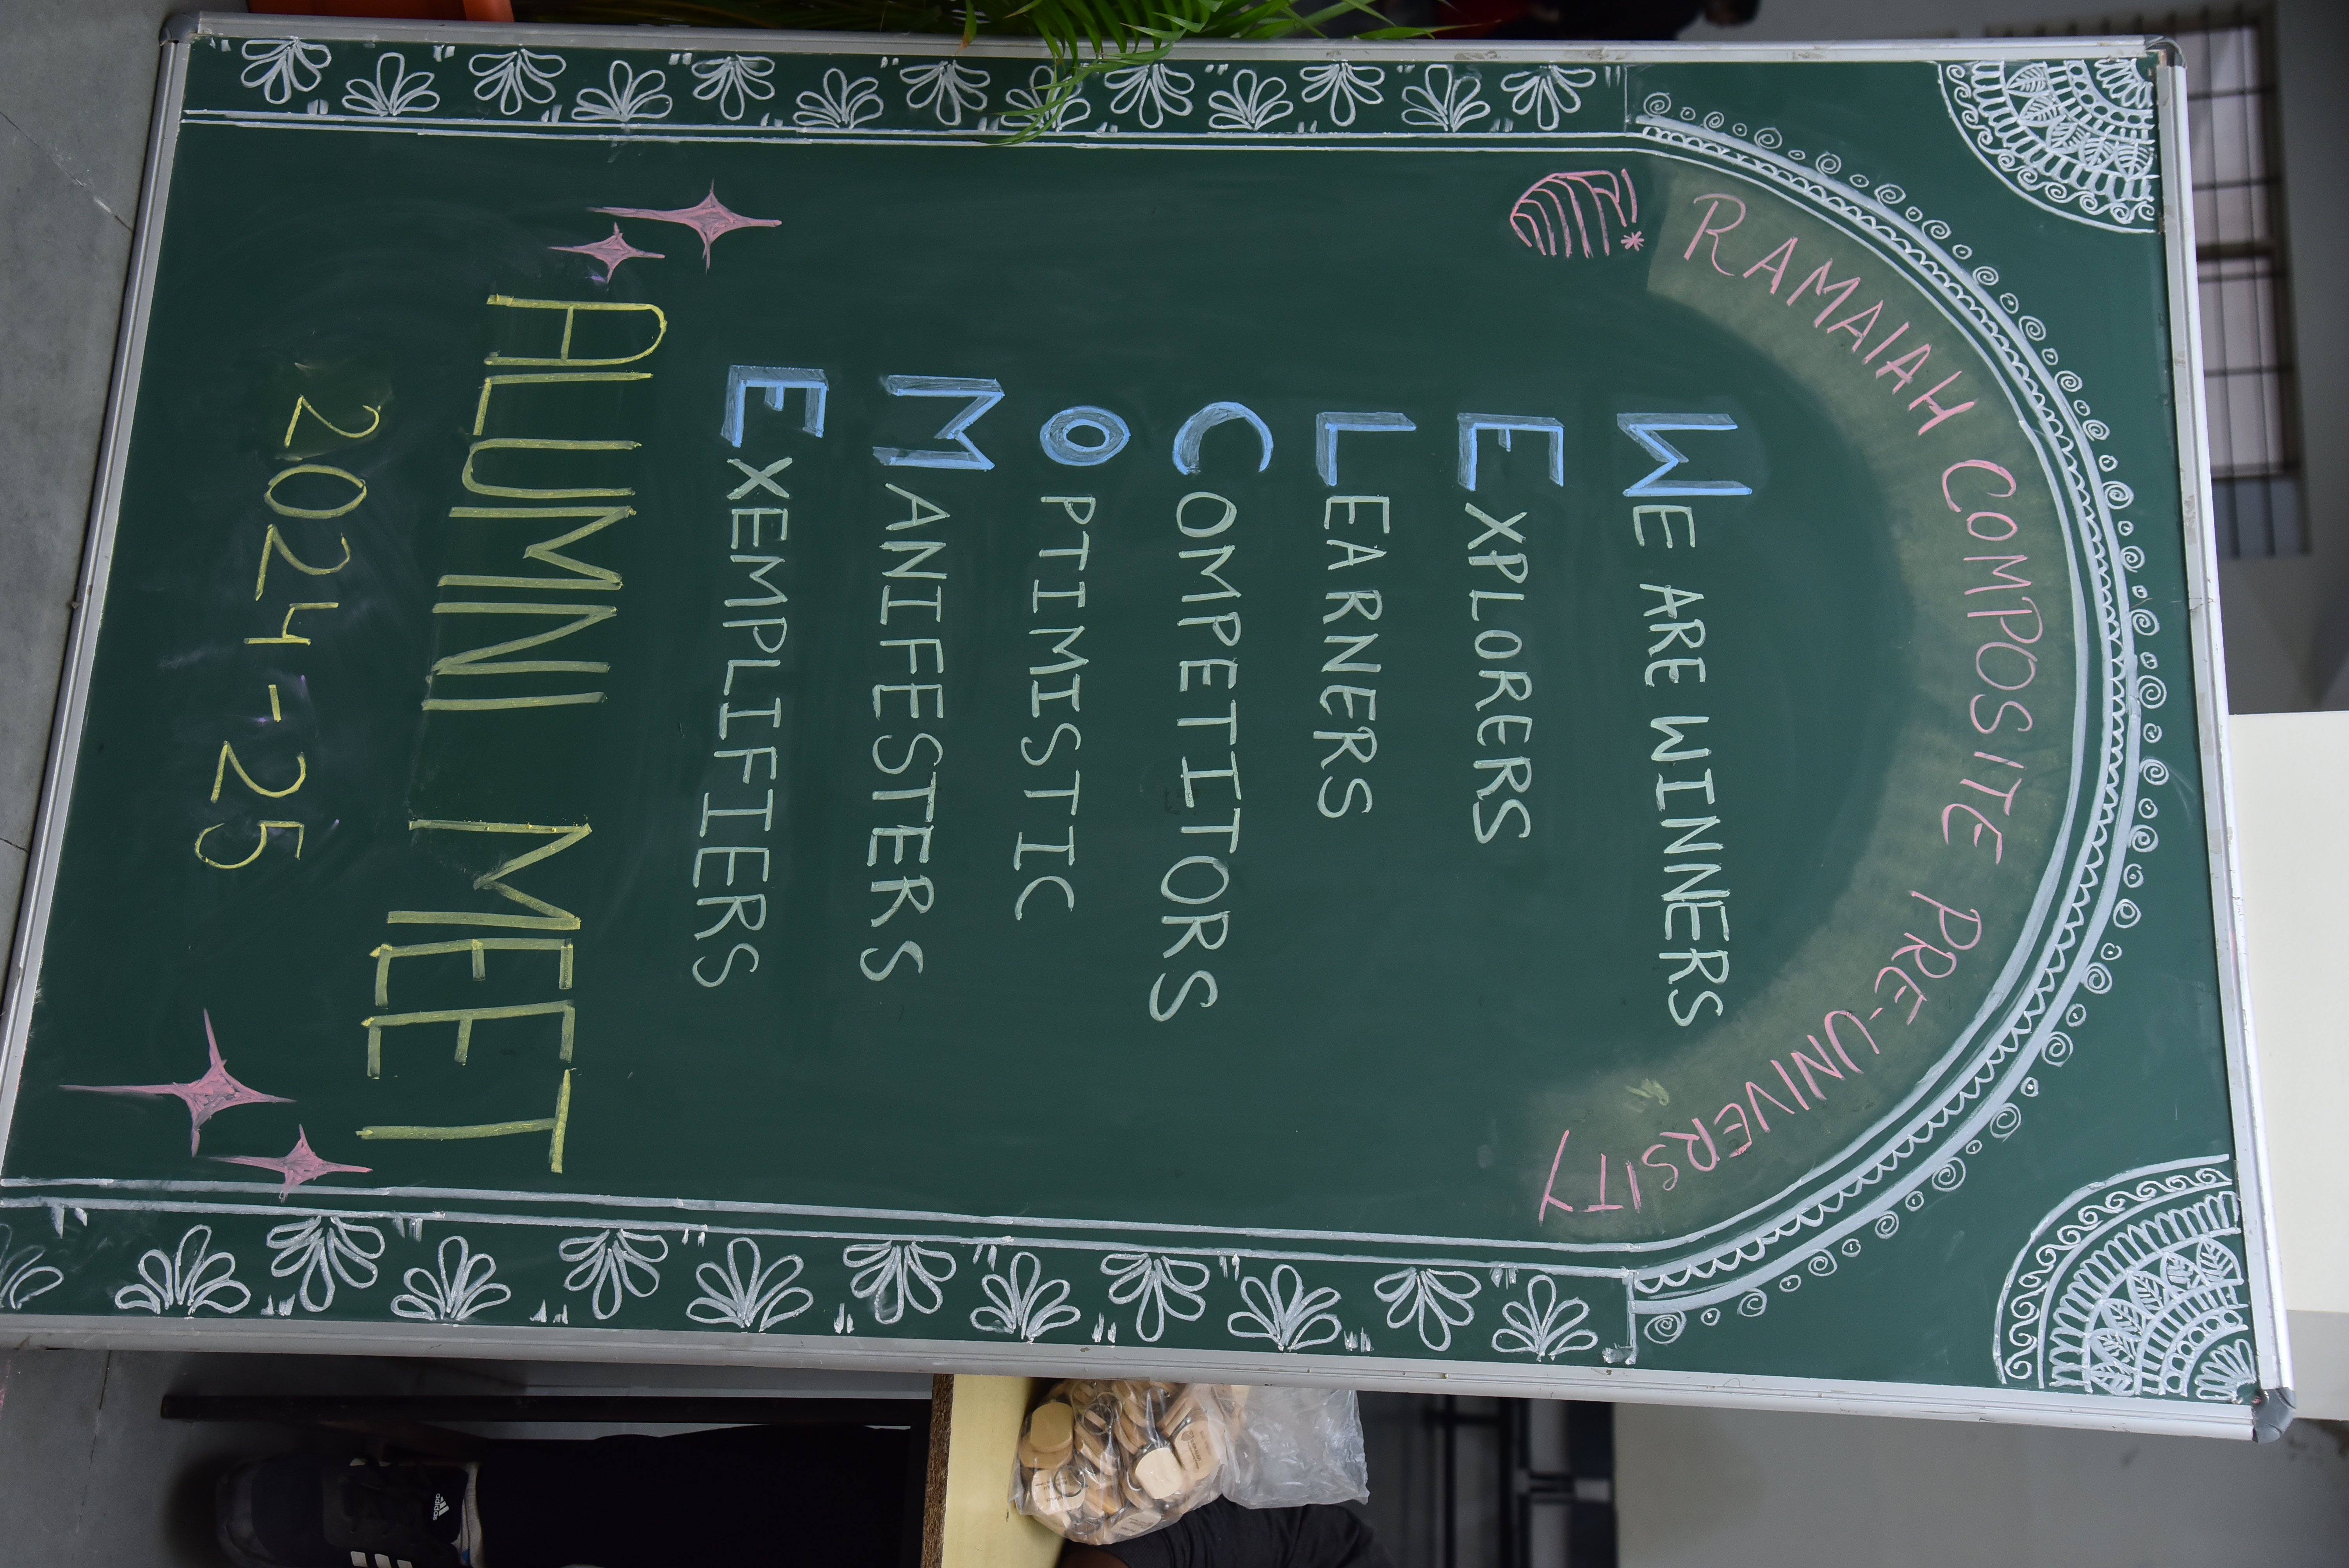 RAMAIAH COMPOSITE PRE-UNIVERSITY
WE ARE WINNERS
EXPLORERS
LEARNERS
COMPETITORS
OPTIMISTIC
MANIFESTERS
EXEMPLIFIERS
ALUMNI MEET
2024-25
adidas